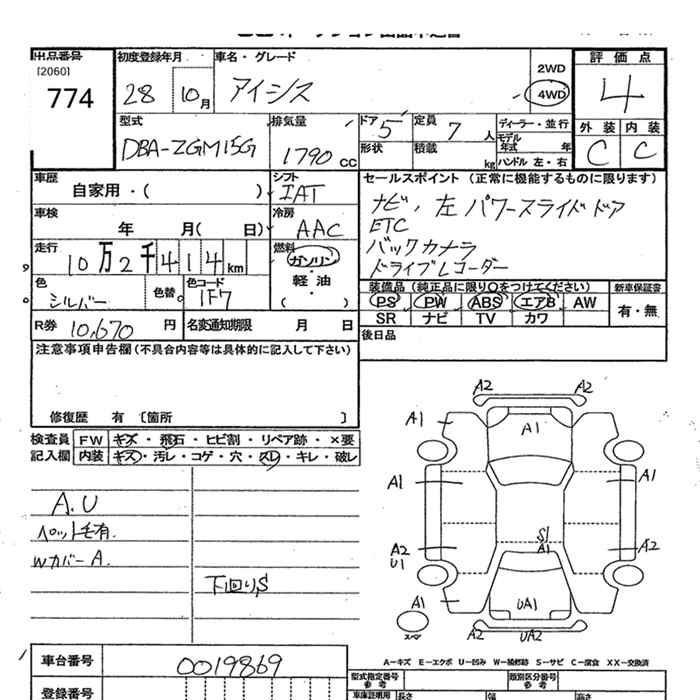 出品番号 初度登録年月 車名・グレード 2WD 4WD 評価点
[2060]
774 28 10月 アイシス 4
型式 排気量 ドア 5 定員 7人 ディーラー・並行 外装 内装
DBA-ZGM15G 1790 CC 形状 積載 kg モデル年式 年 C C
ハンドル 左・右
車歴 シフト セールスポイント (正常に機能するものに限ります)
自家用・( ) IAT ナビ、左パワースライドドア
車検 冷房 ETC
年 月( 日) AAC バックカメラ
走行 燃料 ドライブレコーダー
10万2千414km ガソリン・軽油
( )
色 シルバー 色替 色コード 1F7 装備品 (純正品に限り○をつけてください) 新車保証書
PS PW ABS エアB AW 有・無
R券 10,670 円 名変通知期限 月 日 SR ナビ TV カワ
注意事項申告欄 (不具合内容等は具体的に記入して下さい) 後日品
修復歴 有 〔箇所 〕
検査員 FW キズ・飛石・ヒビ割・リペア跡・×要
記入欄 内装 キズ・汚レ・コゲ・穴・スレ・キレ・破レ
A.U
ペット毛有.
Wカバー A.
下回り,S
A2 A2
A1 A1
A1 A1
A2 U1 S1 A1 A2
A1 UA1
スペ A2 UA2
A-キズ E-エクボ U-凹み W-補修跡 S-サビ C-腐食 XX-交換済
車台番号 0019869 型式指定番号 参考 類別区分番号 参考
登録番号 車庫証明用 長さ 幅 高さ